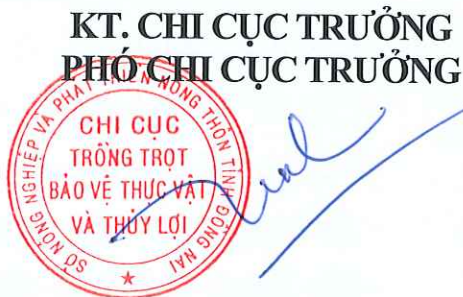 KT. CHI CỤC TRƯỞNG
PHÓ CHI CỤC TRƯỞNG
SỞ NÔNG NGHIỆP VÀ PHÁT TRIỂN NÔNG THÔN TỈNH ĐỒNG NAI
CHI CỤC
TRỒNG TRỌT
BẢO VỆ THỰC VẬT
VÀ THỦY LỢI